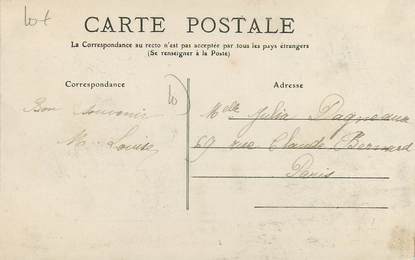 lot
CARTE POSTALE
La Correspondance au recto n'est pas acceptée par tous les pays étrangers
(Se renseigner à la Poste)
Correspondance
Adresse
10
Bon souvenir
M. Louise
Melle Julia Dagneaux
69 rue Claude Bernard
Paris